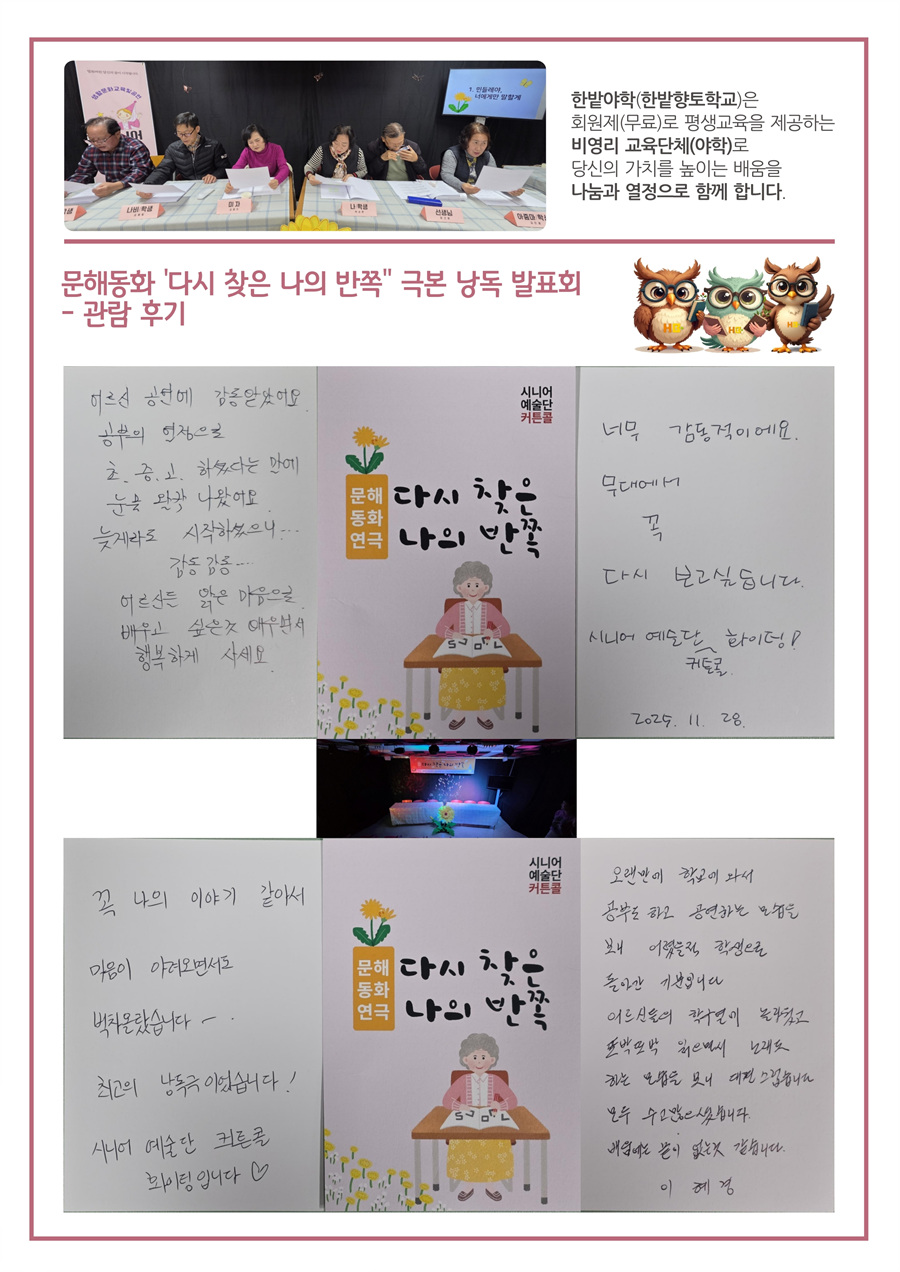 1. 민들레야,
너에게만 말할게
나비 학생
미자
나 학생
선생님
한밭야학(한밭향토학교)은
회원제(무료)로 평생교육을 제공하는
비영리 교육단체(야학)로
당신의 가치를 높이는 배움을
나눔과 열정으로 함께 합니다.
문해동화 '다시 찾은 나의 반쪽" 극본 낭독 발표회
- 관람 후기
어르신 공연에 감동알았어요
공부의 열정으로
초. 중. 고. 하셨다는 말에
눈물 왈칵 나왔어요
늦게라도 시작하셨으니...
감동 감동...
어르신들 맑은 마음으로
배우고 싶은것 배우면서
행복하게 사세요
시니어
예술단
커튼콜
문해
동화
연극
다시 찾은
나의 반쪽
너무 감동적이에요.
무대에서
꼭
다시 보고싶습니다.
시니어 예술단 화이팅!
커튼콜.
2025. 11. 28.
꼭 나의 이야기 같아서
마음이 아려오면서도
벅차올랐습니다 ~.
최고의 낭독극이었습니다!
시니어 예술단 커튼콜
화이팅입니다 ♡
시니어
예술단
커튼콜
문해
동화
연극
다시 찾은
나의 반쪽
오랜만에 학교에 와서
공부도 하고 공연하는 모습을
보니 어렸을적 학생으로
돌아간 기분입니다
어르신들의 학구열이 놀라웠고
또박또박 읽으면서 노래도
하는 모습을 보니 대견스럽습니다
모두 수고많으셨습니다.
배움에는 끝이 없는것 같습니다.
이 혜 경